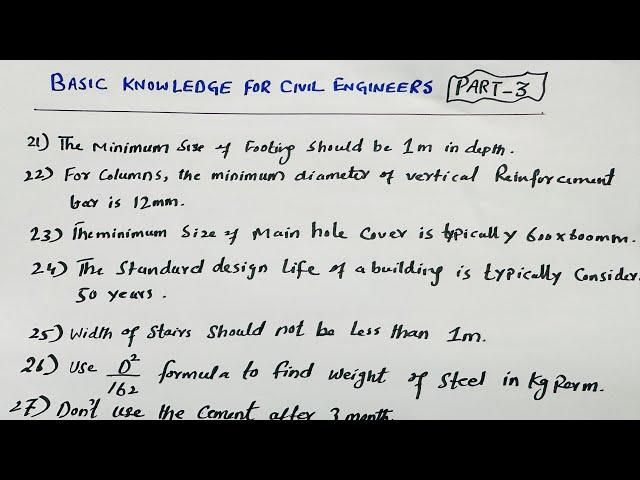 BASIC KNOWLEDGE FOR CIVIL ENGINEERS PART-3
21) The Minimum Size of Footing should be 1m in depth.
22) For Columns, the minimum diameter of vertical Reinforcement
bar is 12mm.
23) The minimum Size of Main hole Cover is typically 600x600mm.
24) The Standard design life of a building is typically Consider.
50 years.
25) Width of Stairs Should not be less than 1m.
26) Use D²/162 formula to find weight of Steel in Kg Per m.
27) Don't use the Cement after 3 month.